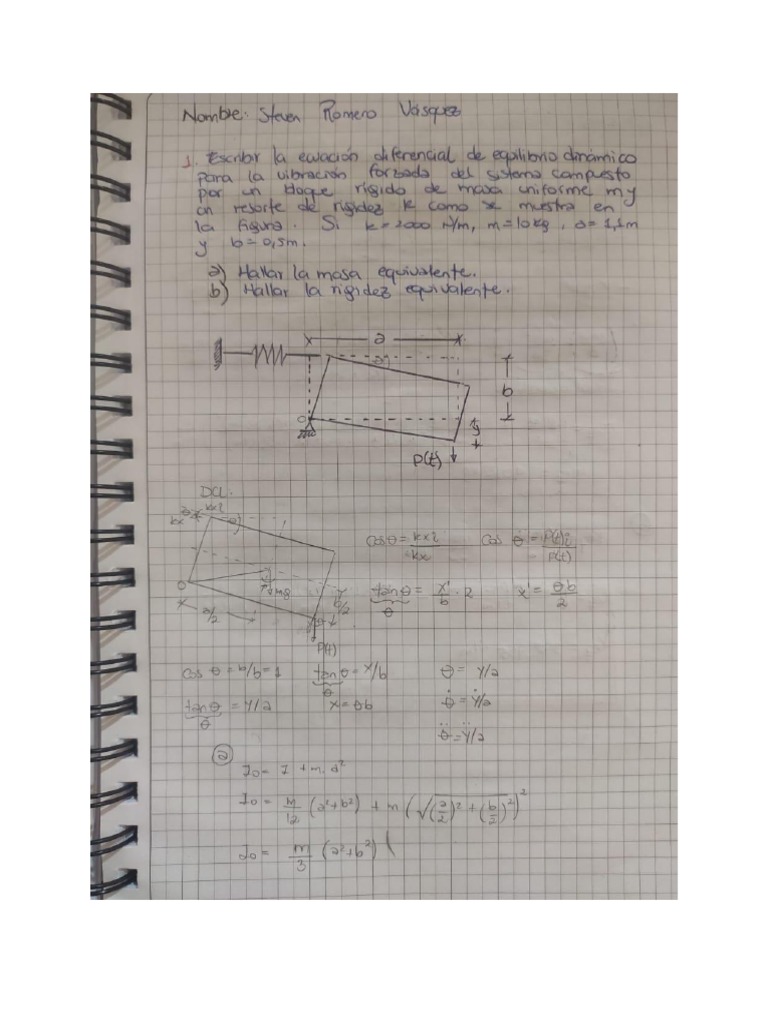 Nombre: Steven Romero Vásquez
1. Escribir la ecuación diferencial de equilibrio dinámico
para la vibración forzada del sistema compuesto
por un bloque rígido de masa uniforme m y
un resorte de rigidez k como se muestra en
la figura. Si k = 2000 N/m, m = 10 kg, a = 1,1m
y b = 0,5m.
a) Hallar la masa equivalente.
b) Hallar la rigidez equivalente.
x a x
b
O
y
+
P(t)
DCL.
kx θ kxi
O
mg
x a/2
b/2
P(t)
cos θ = kxi/kx cos θ = P(t)i/P(t)
tan θ = x'/b · 2 x' = θb/2
θ
cos θ = b/b = 1 tan θ = x/b θ = y/a
θ
tan θ = y/a x = θb θ̇ = ẏ/a
θ
θ̈ = ÿ/a
a
Io = I + m · d²
Io = m/12 (a² + b²) + m (√((a/2)² + (b/2)²))²
Io = m/3 (a² + b²)